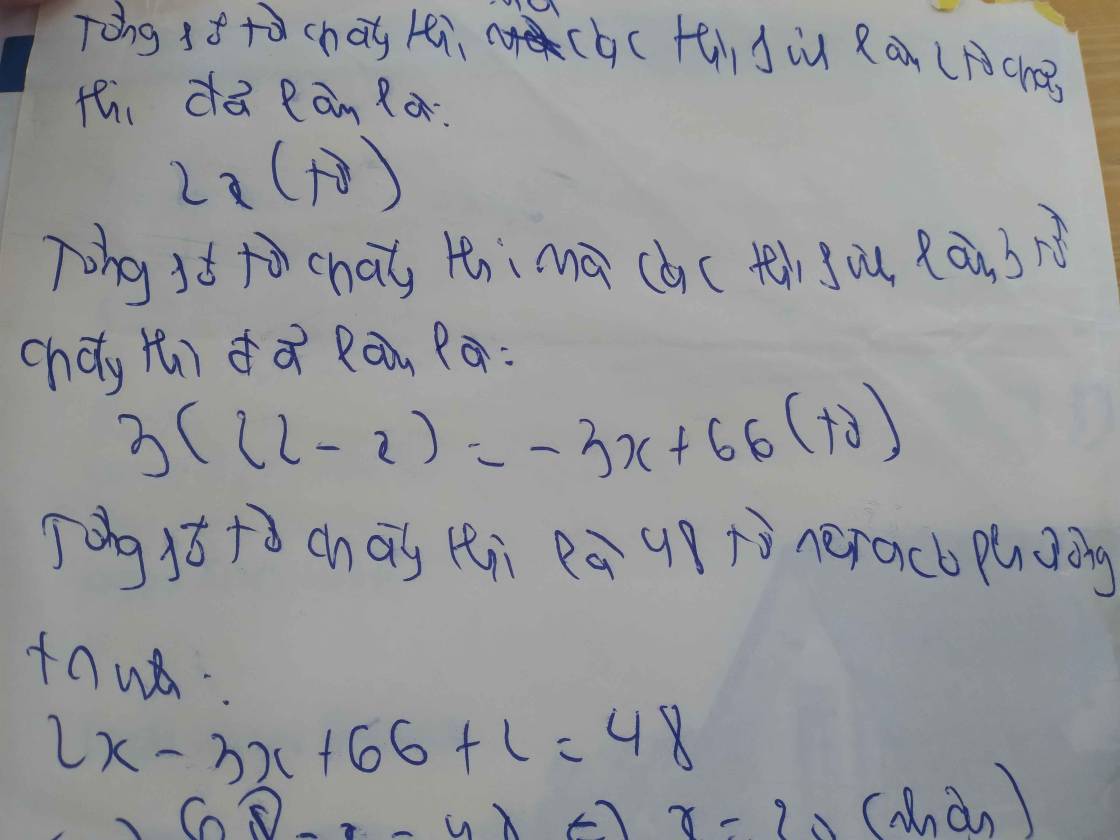 mà
Tổng số tờ giấy thi các thí sinh làm 2 tờ giấy
thi đã làm là:
2x (tờ)
Tổng số tờ giấy thi mà các thí sinh làm 3 tờ
giấy thi đã làm là:
3(22 - x) = -3x + 66 (tờ)
Tổng số tờ giấy thi là 48 tờ nên ta có phương
trình:
2x - 3x + 66 + 2 = 48
68 - x = 48 <=> x = 20 (nhận)